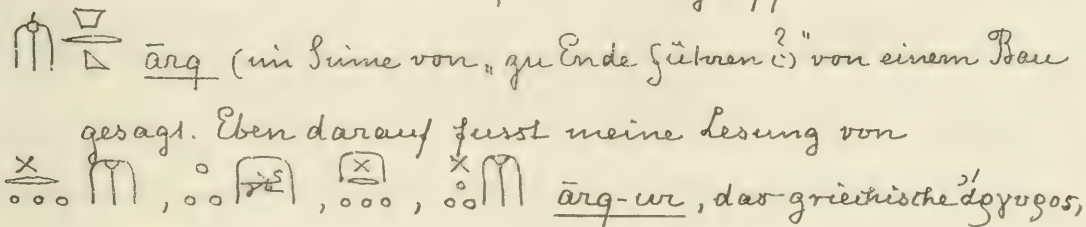 ārq (im Sinne von „zu Ende führen (?)" von einem Bau
gesagt. Eben darauf fusst meine Lesung von
, , , ārq-ur, das griechische ἄργυρος,